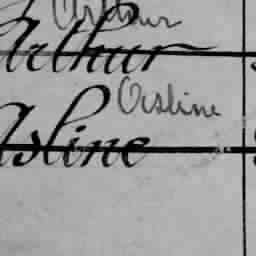 Arthur
Arthur
Orsline
Asline